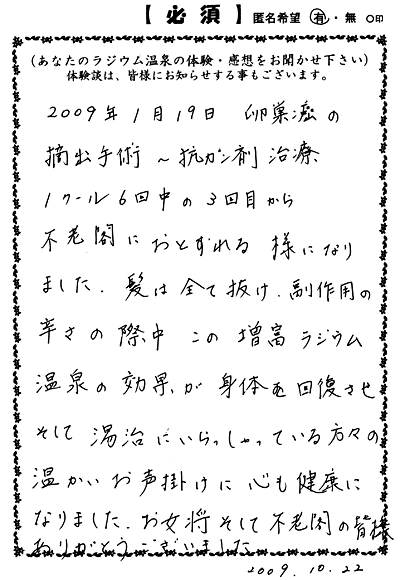 【必須】 匿名希望 有・無 ○印
(あなたのラジウム温泉の体験・感想をお聞かせ下さい)
体験談は、皆様にお知らせする事もございます。
2009年1月19日 卵巣癌の
摘出手術~抗ガン剤治療
1クール6回中の3回目から
不老閣におとずれる様になり
ました. 髪は全て抜け. 副作用の
辛さの際中この増富ラジウム
温泉の効果が身体を回復させ
そして湯治にいらっしゃっている方々の
温かいお声掛けに心も健康に
なりました. お女将そして不老閣の皆様
ありがとうございました
2009.10.22